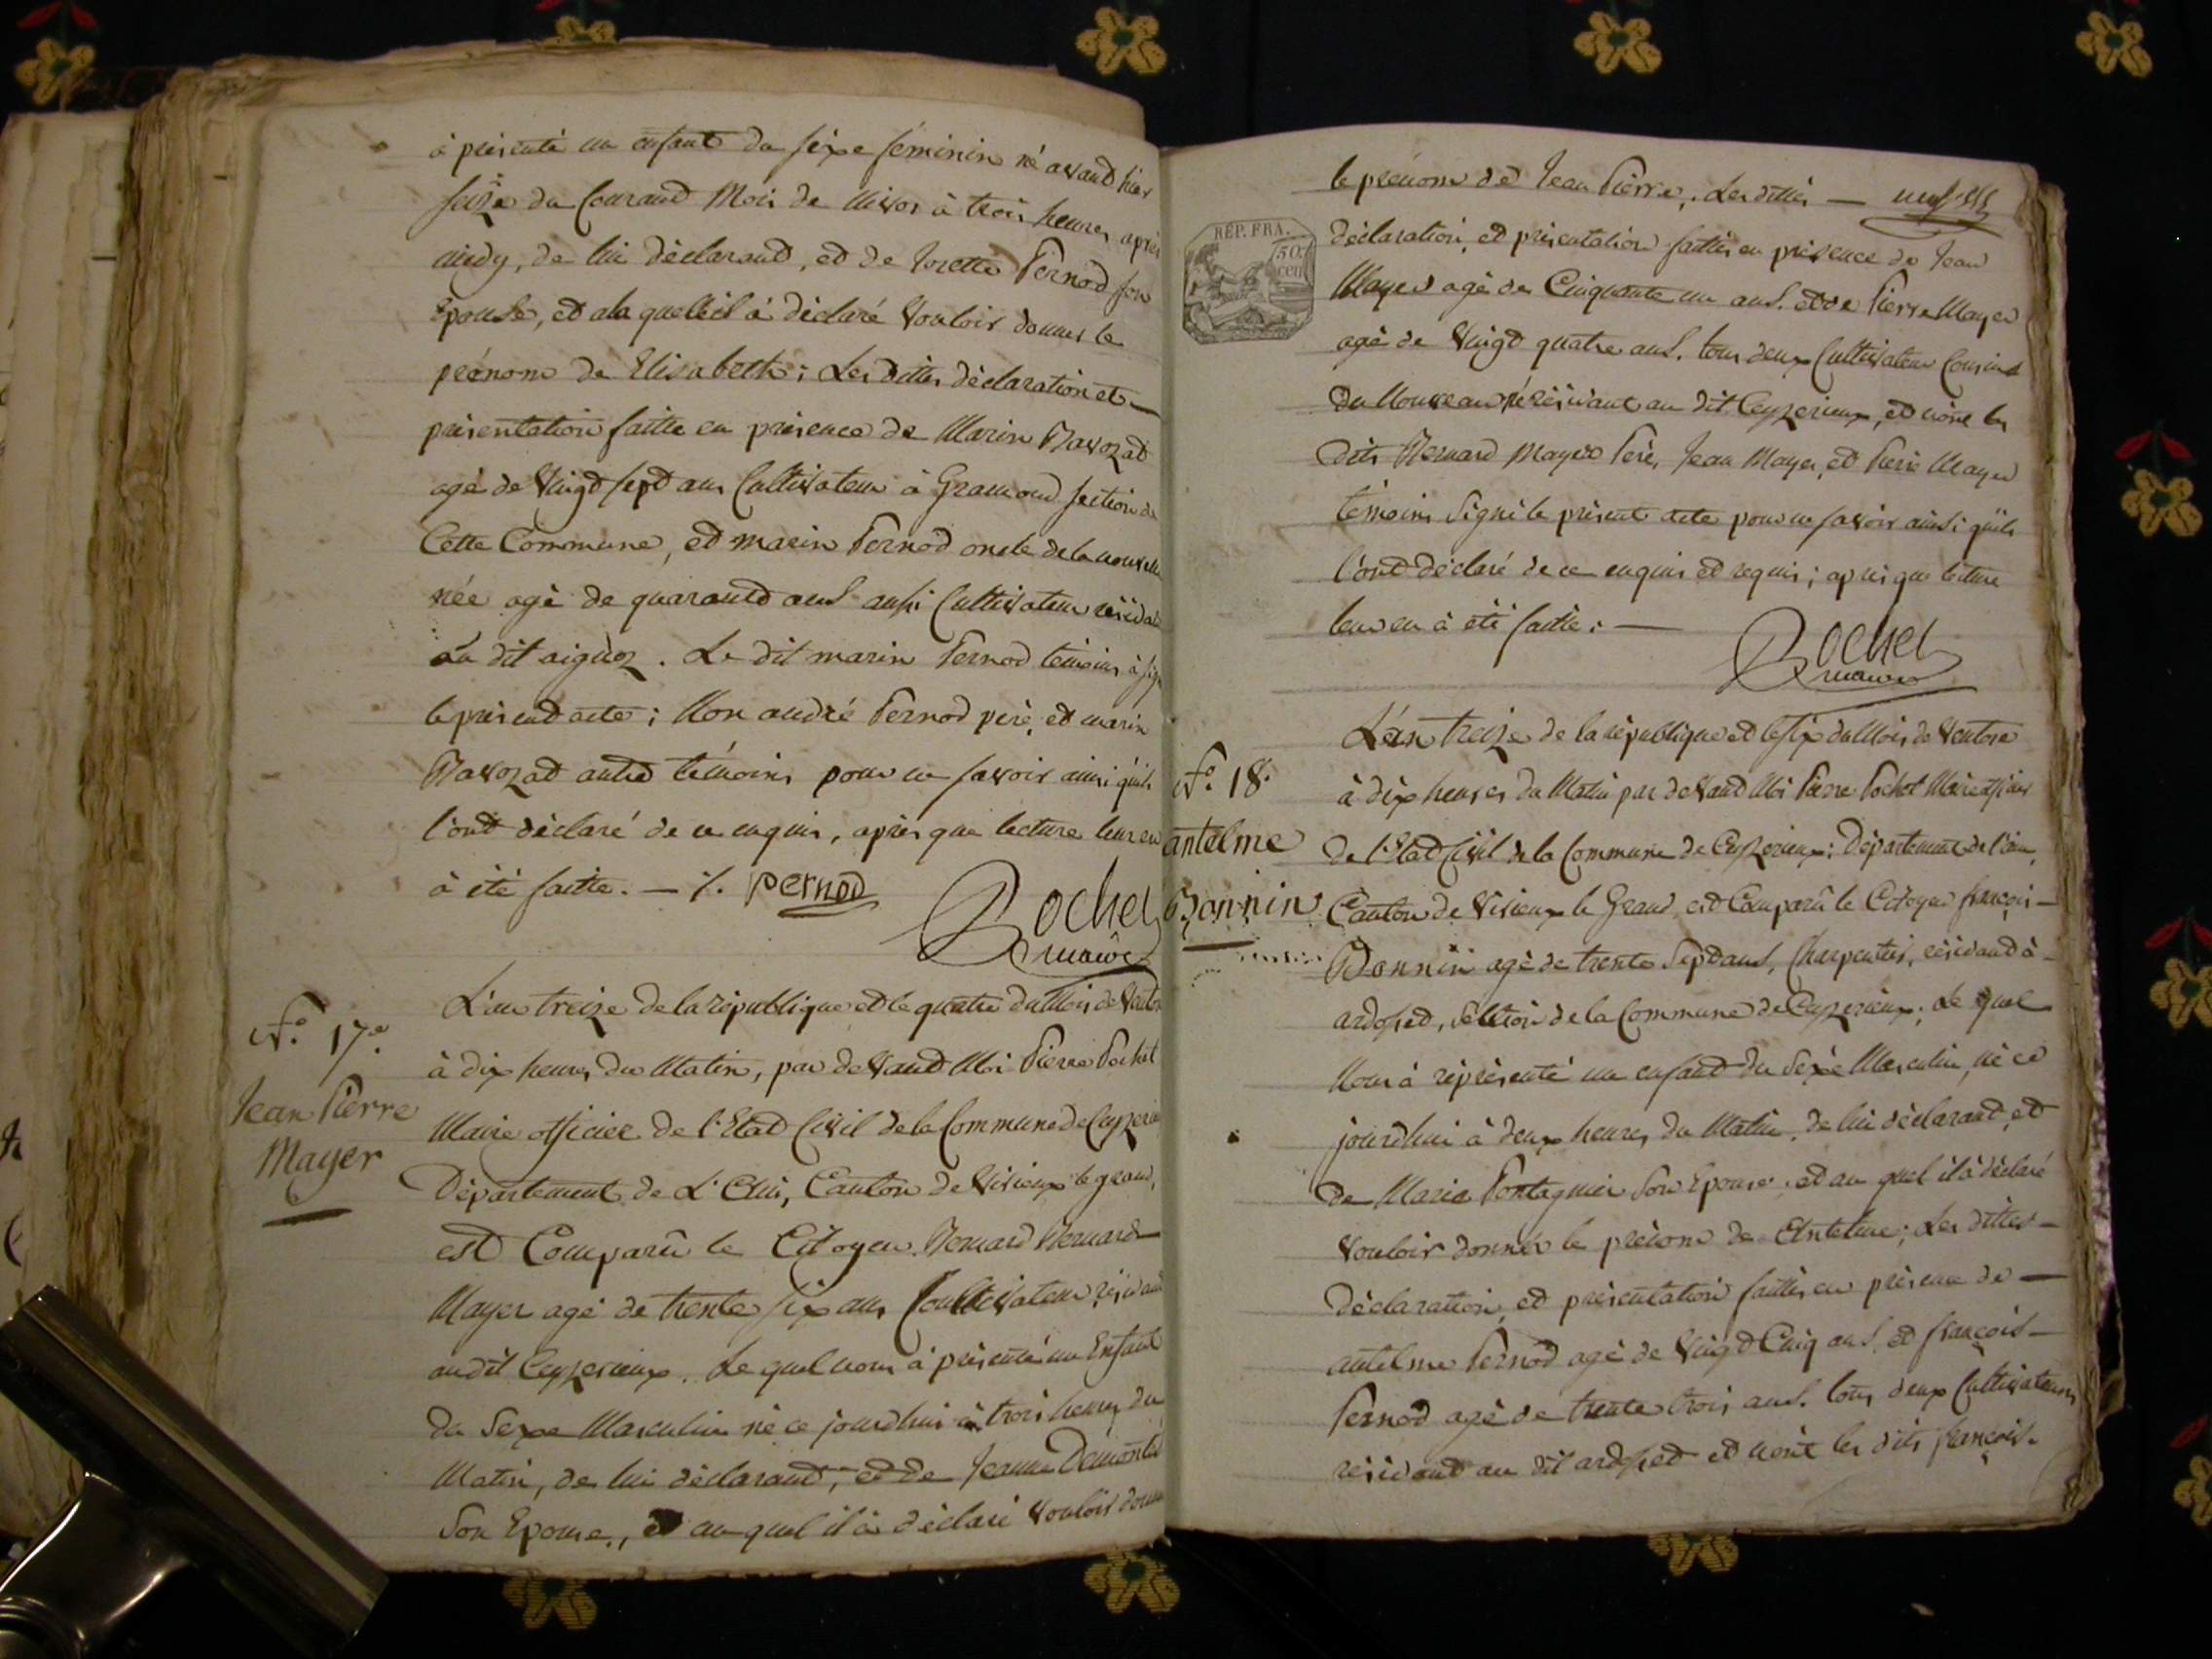 à présenté un enfant du sixe féminin né avand hier
seize du Courand Mois de Nivos à trois heures après
midy, de lui déclarand, et de Josette Pernod son
Epouse, et a la quelle il à déclaré Vouloir donner le
prénom de Elisabeth ; Les dittes déclaration et
présentation faitte en présence de Marin Ravozat
agé de Vingt sept ans Cultivateur à Gramond section de
Cette Commune, et marin Pernod oncle de la nouvelle
née agé de quarante ans aussi Cultivateur résidant
au dit aignoz. Le dit marin Pernod témoins à signé
le présend acte ; Non andré Pernod père, et marin
Ravozat autre témoins pour ne savoir ainsi qu'ils
l'ont déclaré de ce enquis, après que lecture leur en
à été faitte. — /. pernod
Rochet
maire
N.° 17.e
Jean Pierre
Mayer
L'an treize de la république et le quatre du Mois de Ventos
à dix heures du Matin, par devand Moi Pierre Rochet
Maire officier de l'Etat Civil de la Commune de Ceyzerieu
Département de L'Ain, Canton de Virieux le grand,
est Comparû le Citoyen Bernard Bernard
Mayer agé de trente six ans Coultivateur résidand
au dit Ceyzerieux. Le quel nous à présenté un Enfant
du Sexe Masculin né ce jourd'hui à trois heures du
Matin, de lui déclarand, et de Jeanne
Son Epouse, et au quel il à déclaré Vouloir donner
le prénom de Jean Pierre. Les dittes —
REP. FRA.
50
cent
déclaration, et présentation faittes en présence de Jean
Mayer agé de Cinquante un ans. et de Pierre Mayer
agé de Vingt quatre ans. tous deux Cultivateur Cousins
du Nouveau né résidant au dit Ceyzerieux, et n'ont les
dits Bernard Mayer Père, Jean Mayer, et Pierre Mayer
témoins Signé le présent acte pour ne savoir ainsi qu'ils
l'ont déclaré de ce enquis et requis ; après que lecture
leur en à été faitte. —
Rochet
maire
N.° 18.
antelme
Bonnin
L'an treize de la république et le six du Mois de Ventose
à dix heures du Matin par devand Moi Pierre Rochet Maire officier
de l'Etat Civil de la Commune de Ceyzerieux ; Département de l'ain,
Canton de Virieux le Grand est Comparû le Citoyen françois —
Bonnin agé de trente Sept ans, Charpentier, résidand à
ardosset, Section de la Commune de Ceyzerieux ; Le quel
Nous à réprésenté un enfand du Sexe Masculin, né ce
jourd'hui à deux heures du Matin, de lui déclarand, et
de Marie Pontagnier Son Epouse, et au quel il à déclaré
Vouloir donner le prénom de Antelme ; Les dittes —
Déclaration, et présentation faittes en présence de —
antelme Pernod agé de Vingt Cinq ans, et françois —
Pernod agé de trente trois ans. tous deux Cultivateurs
résidand au dit ardosset et n'ont les dits françois